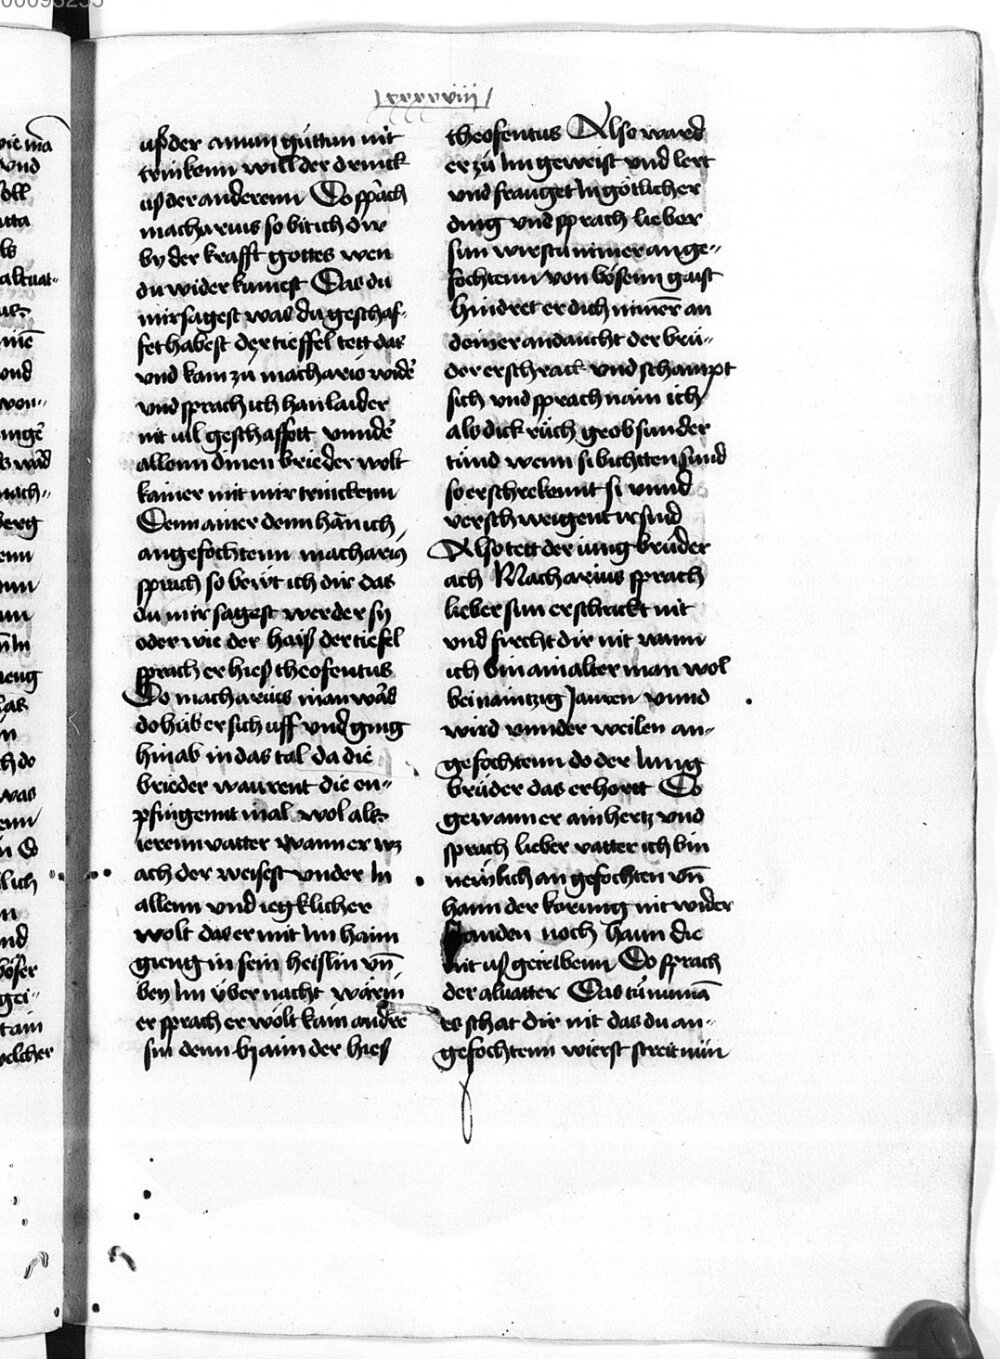 lxxxxviii
uß der ainnen guttren nit
trinkenn will der drinck
uß der anderenn Do sprach
macharius so bit ich dir
by der krafft gottes wen
du wider kumest Das du
mir sagest was du geschaf-
fet habest der tieffel tett das
und kam zu machario widē
und sprach ich han laider
nit uil geschaffott vnndē
allenn dinen brieder wolt
kainer mit mir trinckenn
Denn ainer denn hān ich
angefochtenn macharius
sprach so bewt ich dir das
du mir sagest wer der sy
oder wie der haiß der tiefel
sprach er hieß theofentus
Do macharius inan wās
do hub er sich uff und ging
hinab in das tal da die
brieder waurent die en-
pfingennt mal wol als
ierenn vatter wann er wz
ach der weisest vnder In
allenn und iegklicher
wolt das er mit Im haim
gieng in sein heislin vn̄
bey Im über nacht wärin
er sprach er wölt kain andre
sin denn by aim der hies
theofentus Also ward
er zu Im geweist vnd lert
vnd frauget In götlicher
ding vnd sprach lieber
sun wirstu nimer an ge-
fochtenn von bösenn gaist
hindret er dich nimēr an
deiner andaucht der brü-
der erschrack vnd schampt
sich vnd sprach nain ich
als dick rüch grob sunder
tünd wenn si bichtten sünd
so erschrekennt si vnnd
verschweigent ir sünd
Also tett der iung brüder
ach Macharius sprach
lieber sun erschrickt nit
vnd fircht dir nit wann
ich bin ain alter man wol
bei naintzig Jauren vnnd
wird vnnder weilen an-
gefochtenn do der Iung
brüder das erhortt Do
gewann er ain hertz vnd
sprach lieber vatter ich bin
nemlich an gefochten vn̄
hann der korung nit wider
standen noch hann die
nit uß getribenn Do sprach
der altuatter Das tu numā
es schat dir nit das du an-
gefochtenn wierst streit nün